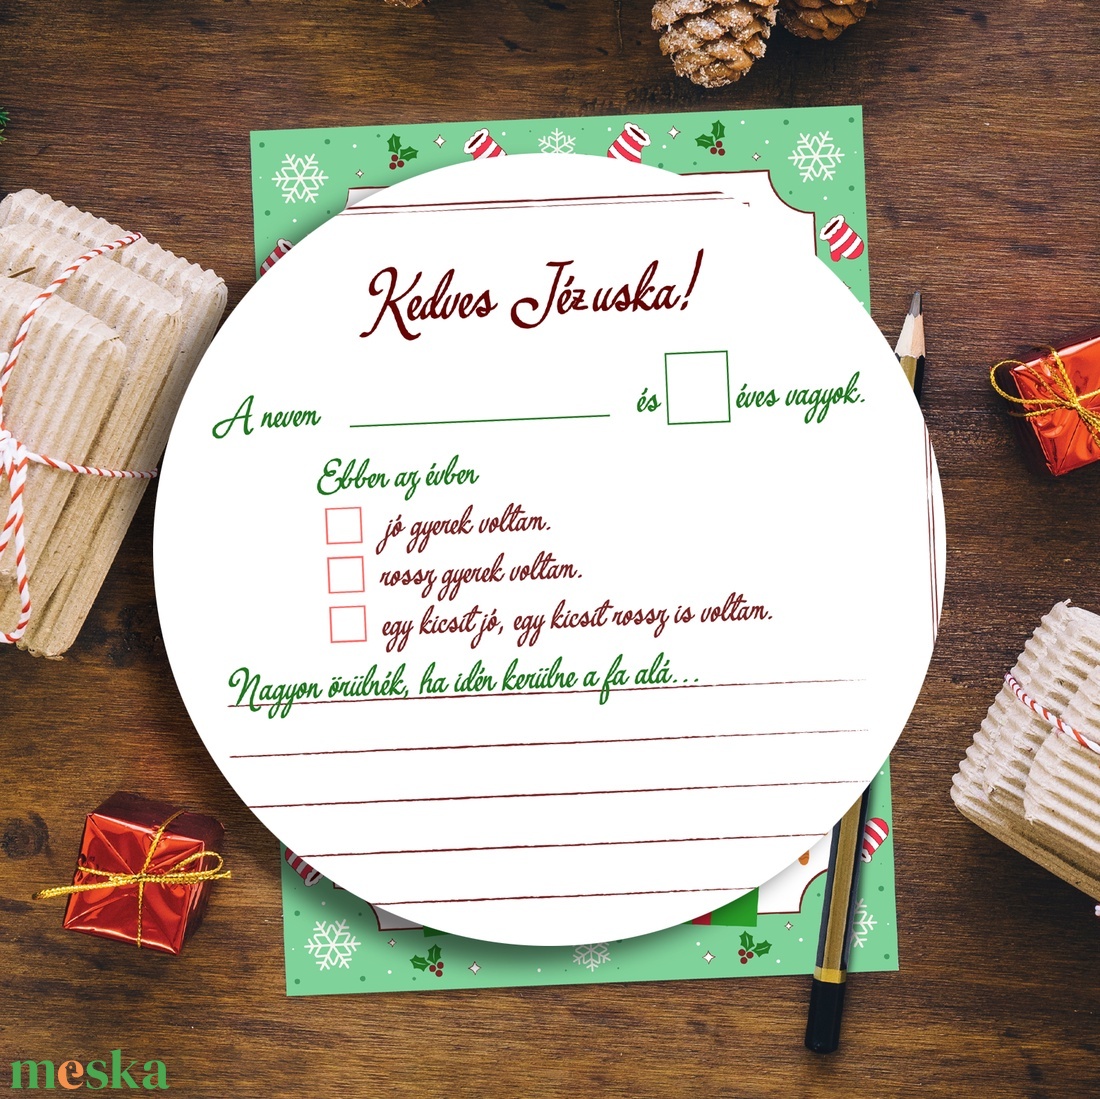 Kedves Jézuska!
A nevem és éves vagyok.
Ebben az évben
jó gyerek voltam.
rossz gyerek voltam.
egy kicsit jó, egy kicsit rossz is voltam.
Nagyon örülnék, ha idén kerülne a fa alá...
meska